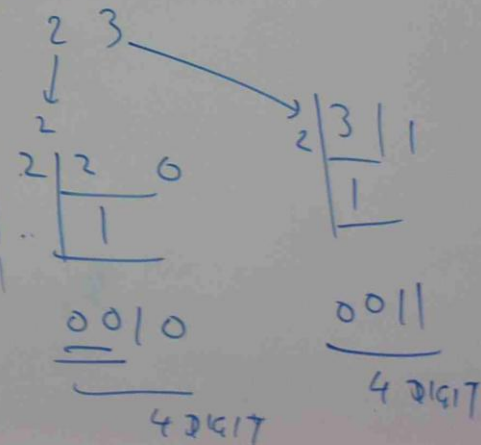 2 3
2
2 2 0
1
0010
4 DIGIT
2 3 1
1
0011
4 DIGIT